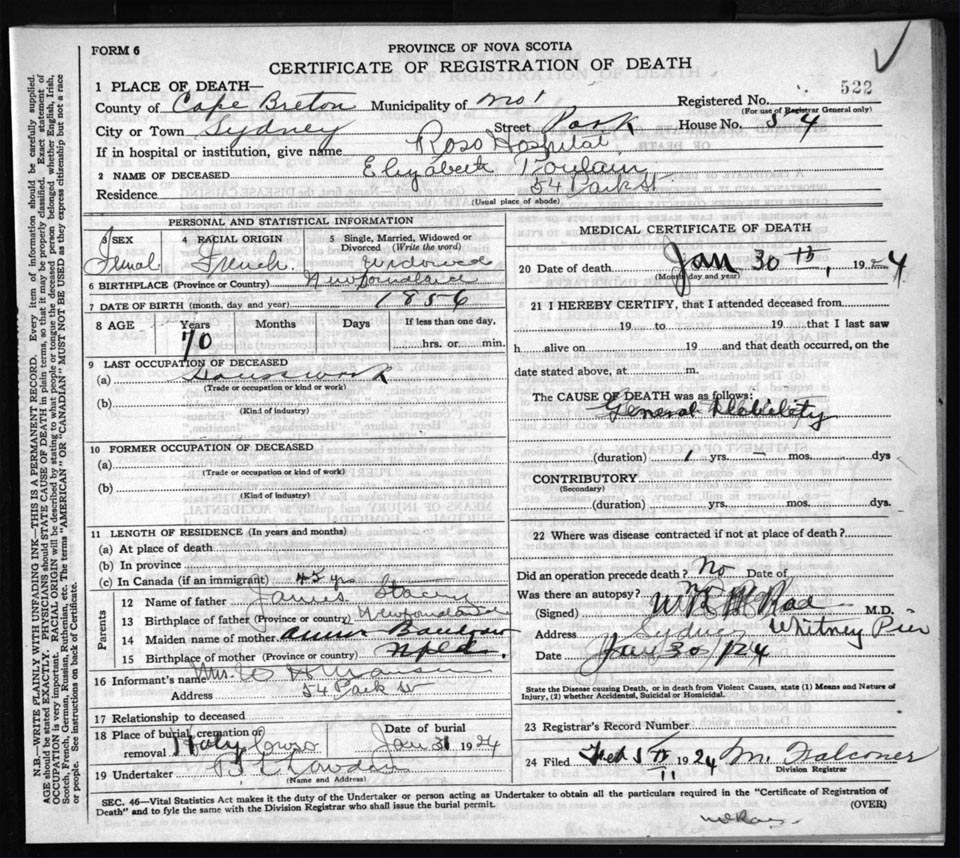 FORM 6
PROVINCE OF NOVA SCOTIA
CERTIFICATE OF REGISTRATION OF DEATH
522
1 PLACE OF DEATH—
County of Cape Breton Municipality of No 1 Registered No.
(For use of Registrar General only)
City or Town Sydney Street Park House No. 54
If in hospital or institution, give name Ross Hospital
2 NAME OF DECEASED Elizabeth Poulain
Residence 54 Park St.
(Usual place of abode)
PERSONAL AND STATISTICAL INFORMATION
3 SEX 4 RACIAL ORIGIN 5 Single, Married, Widowed or Divorced (Write the word)
French. Widowed
6 BIRTHPLACE (Province or Country)
7 DATE OF BIRTH (month, day and year) 1856
8 AGE Years Months Days If less than one day,
70 hrs. or min.
9 LAST OCCUPATION OF DECEASED
(a) Housework
(Trade or occupation or kind of work)
(b)
(Kind of industry)
10 FORMER OCCUPATION OF DECEASED
(a)
(Trade or occupation or kind of work)
(b)
(Kind of industry)
11 LENGTH OF RESIDENCE (In years and months)
(a) At place of death
(b) In province
(c) In Canada (if an immigrant) 45 yrs
Parents
12 Name of father James Stacey
13 Birthplace of father (Province or country)
14 Maiden name of mother
15 Birthplace of mother (Province or country) Nfld.
16 Informant's name Mrs. W H
Address 54 Park St
17 Relationship to deceased
18 Place of burial, cremation or removal Holy Cross Date of burial Jan 31 1924
19 Undertaker
(Name and Address)
MEDICAL CERTIFICATE OF DEATH
20 Date of death Jan 30th, 1924
(Month, day and year)
21 I HEREBY CERTIFY, that I attended deceased from
19 to 19 that I last saw
h alive on 19 and that death occurred, on the
date stated above, at m.
The CAUSE OF DEATH was as follows:
General Debility
(duration) 1 yrs. – mos. dys
CONTRIBUTORY
(Secondary)
(duration) yrs. mos. dys.
22 Where was disease contracted if not at place of death?
Did an operation precede death? No Date of
Was there an autopsy? no
(Signed) M.D.
Address Sydney Whitney Pier
Date Jan 30/24
State the Disease causing Death, or in death from Violent Causes, state (1) Means and Nature of
Injury, (2) whether Accidental, Suicidal or Homicidal.
23 Registrar's Record Number
24 Filed 1924 M. Falconer
Division Registrar
SEC. 46—Vital Statistics Act makes it the duty of the Undertaker or person acting as Undertaker to obtain all the particulars required in the "Certificate of Registration of
Death" and to fyle the same with the Division Registrar who shall issue the burial permit.
(OVER)
N.B.—WRITE PLAINLY WITH UNFADING INK—THIS IS A PERMANENT RECORD. Every item of information should be carefully supplied.
AGE should be stated EXACTLY. PHYSICIANS should STATE CAUSE OF DEATH in plain terms, so that it may be properly classified. Exact statement of
OCCUPATION is very important. RACIAL ORIGIN will be described by stating to what people or tongue the deceased person belonged whether English, Irish,
Scotch, French, German, Russian, Ruthenian, etc. The terms "AMERICAN" OR "CANADIAN" MUST NOT BE USED as they express citizenship but not a race
or people. See instructions on back of Certificate.